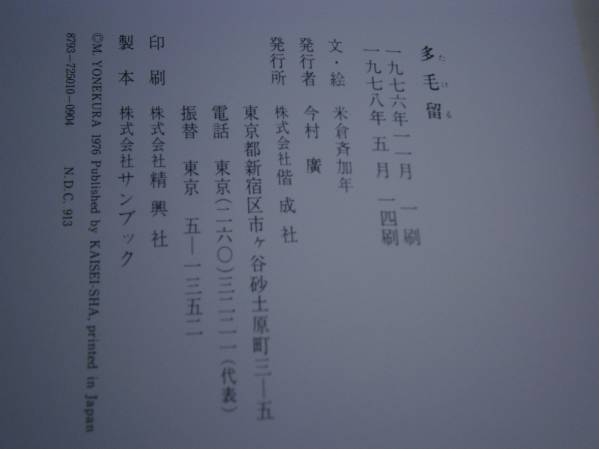 多毛留
たける
一九七六年一一月　一刷
一九七八年　五月　一四刷
文・絵　米倉斉加年
発行者　今村　廣
発行所　株式会社偕成社
東京都新宿区市ヶ谷砂土原町三—五
電話　東京(二六〇)三二二一(代表)
振替　東京　五—一三五二
印刷　株式会社精興社
製本　株式会社サンブック
©M. YONEKURA 1976 Published by KAISEI-SHA, printed in Japan
8793-725010-0904　N.D.C. 913